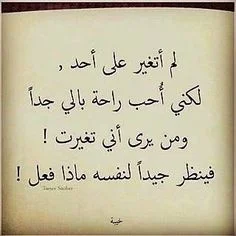 لم أتغير على أحد ,
لكني أُحب راحة بالي جداً
ومن يرى أني تغيرت !
فينظر جيداً لنفسه ماذا فعل !